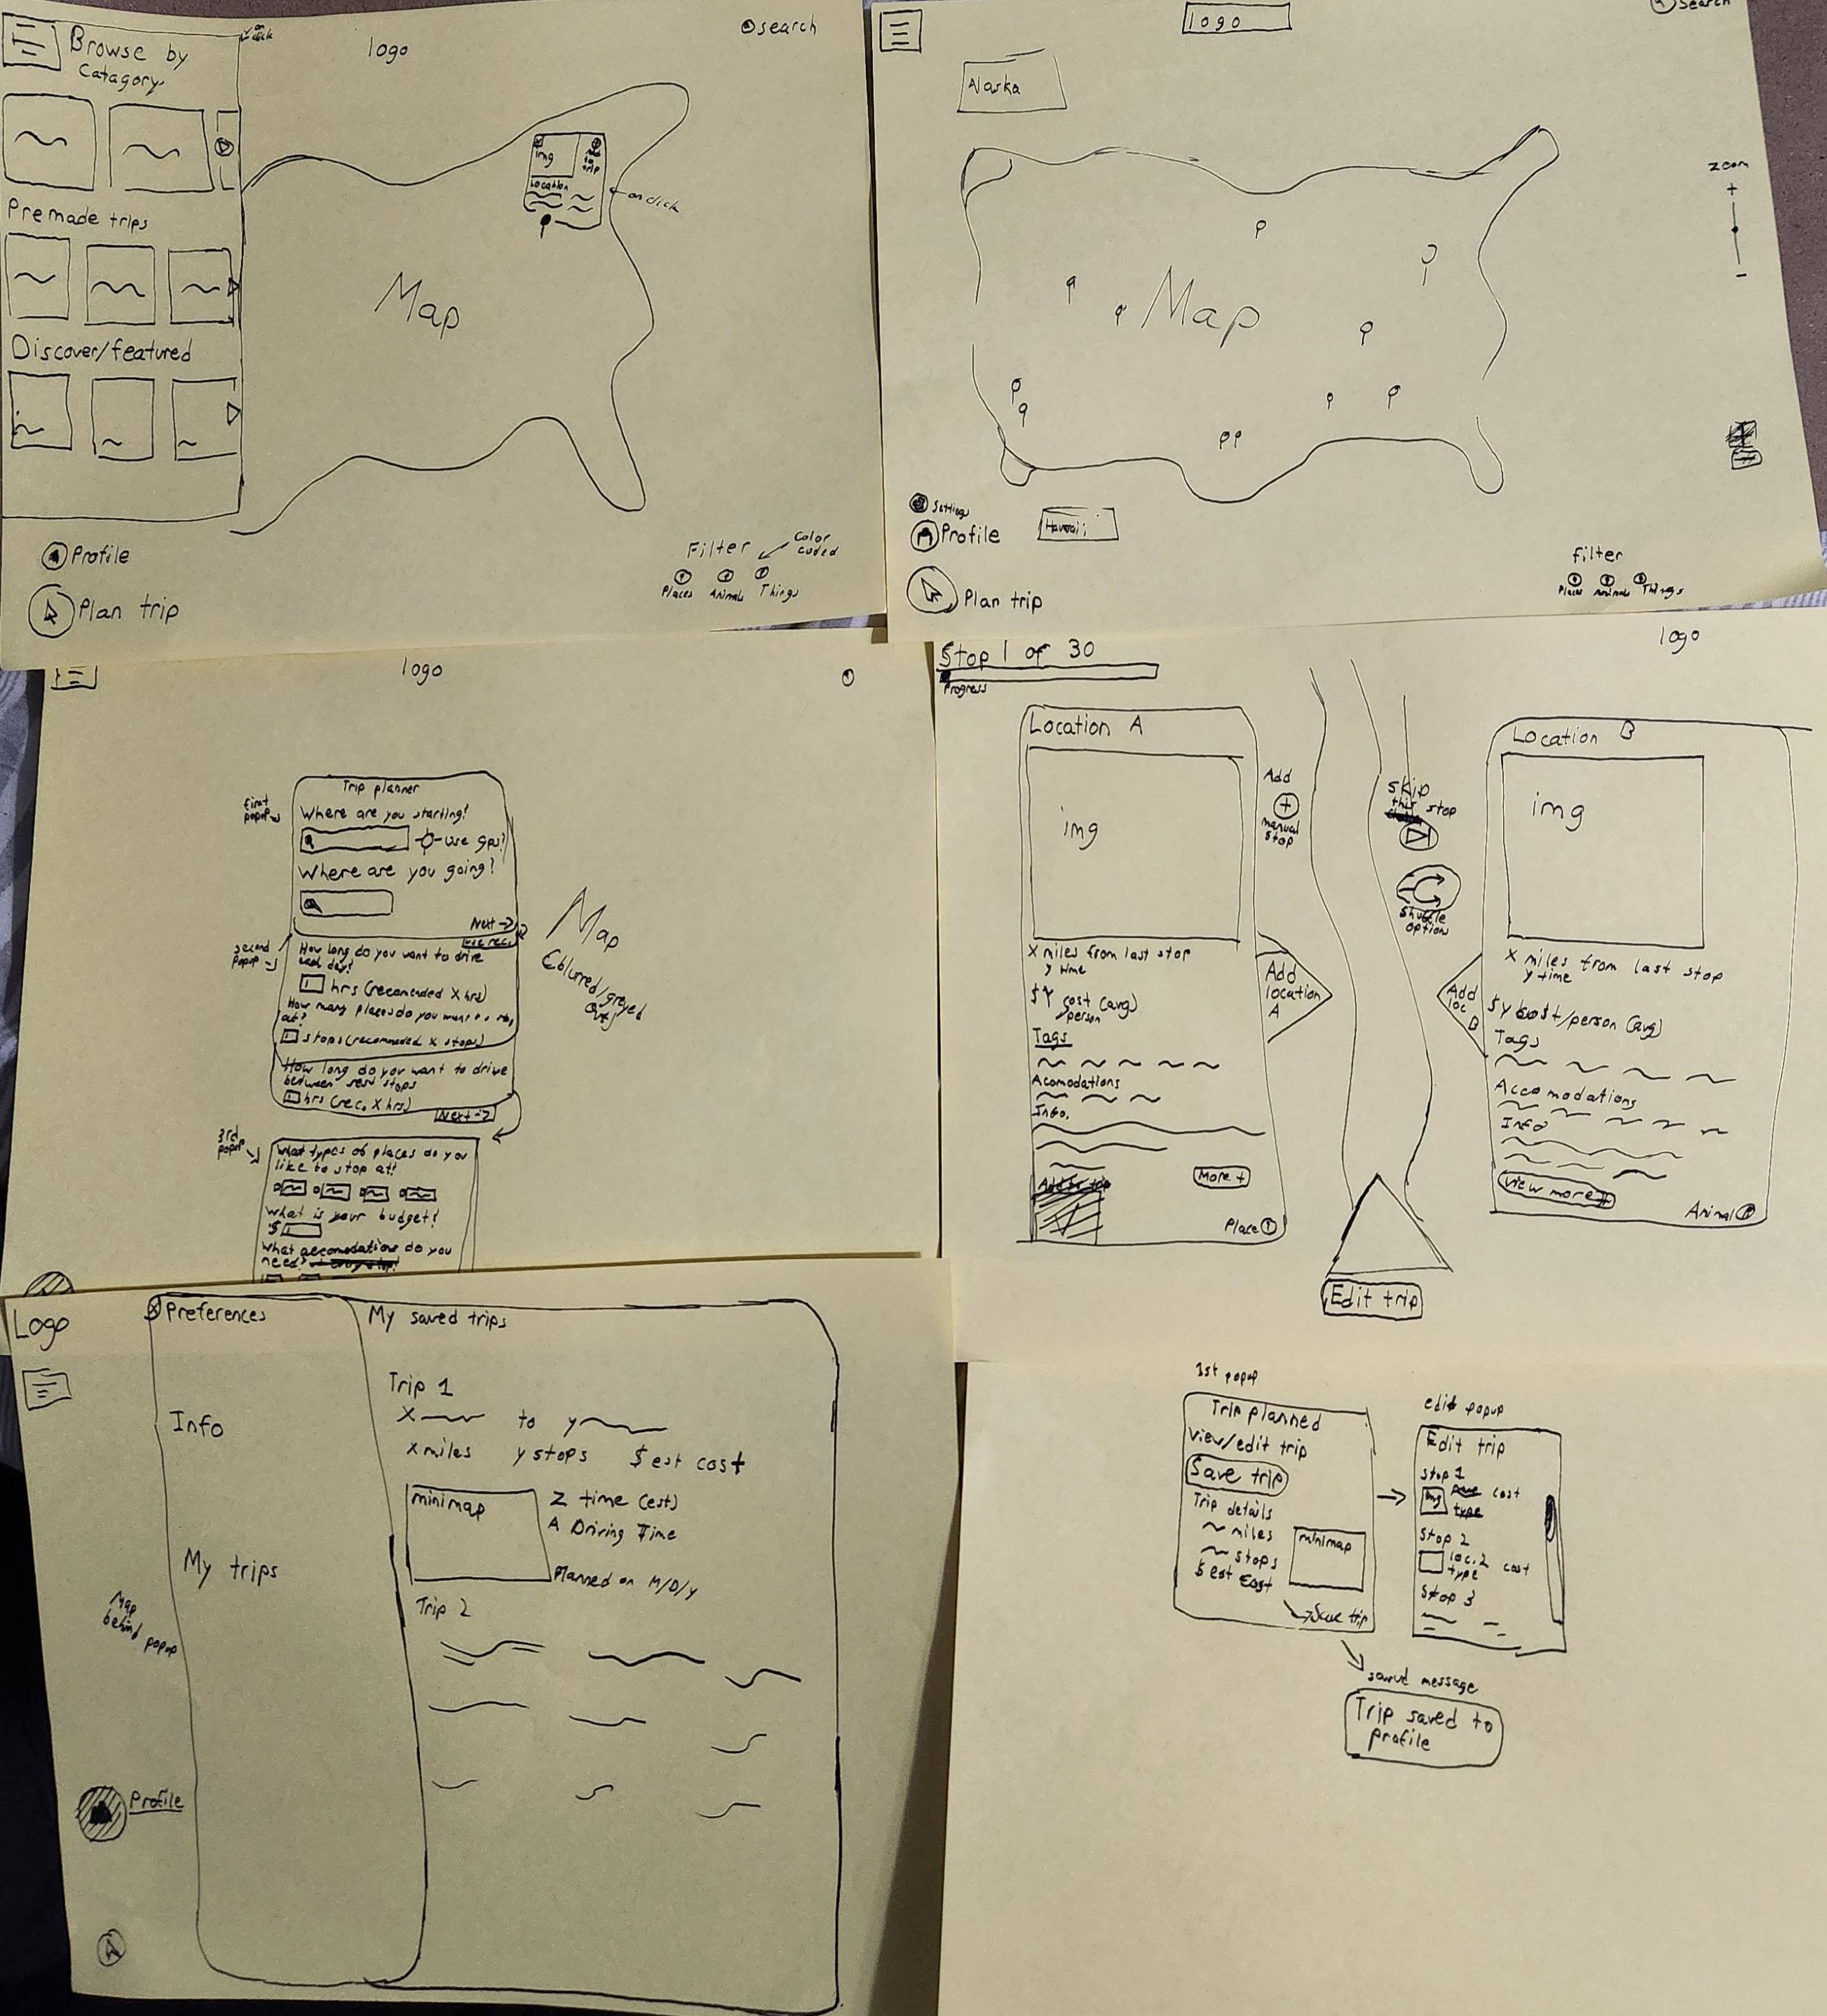 Browse by
Catagory
on
click
logo
search
img
Location
trip
on click
Premade trips
Map
Discover/featured
Profile
Plan trip
Filter
Color
coded
Places Animals Things
logo
Search
Alaska
zoom
+
-
Map
Settings
Profile
Hawaii
Plan trip
filter
Places Animals Things
logo
first
popup
Trip planner
Where are you starting?
use gps?
Where are you going?
Next →
second
popup
How long do you want to drive
each day?
hrs (recomended X hrs)
How many places do you want
at?
stops (recomended X stops)
How long do you want to drive
between rest stops
hrs (rec. X hrs)
Next →
3rd
popup
What types of places do you
like to stop at?
What is your budget?
$
What accomodations do you
need?
Map
blurred/greyed
out
Stop 1 of 30
Progress
logo
Location A
img
Add
+
manual
stop
skip
this stop
Shuffle
option
Location B
img
X miles from last stop
y time
$Y cost (avg)
person
Tags
Acomodations
Info.
More +
Place
Add
location
A
Add
loc
B
X miles from last stop
y time
$y cost/person (avg)
Tags
Accomodations
Info
View more +
Animal
Edit trip
Logo
X Preferences
My saved trips
Info
My trips
Map
behind popup
Profile
Trip 1
X to y
x miles y stops $ est cost
minimap
Z time (est)
A Driving Time
Planned on M/D/Y
Trip 2
1st popup
Trip planned
View/edit trip
Save trip
Trip details
miles
stops
$ est cost
minimap
→ Save trip
edit popup
Edit trip
Stop 1
img
cost
type
Stop 2
loc.2 cost
type
Stop 3
saved message
Trip saved to
profile